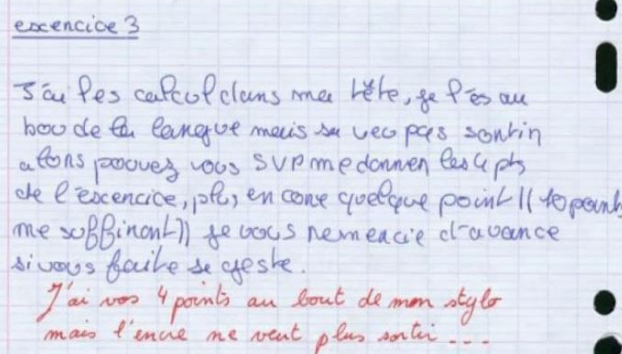 excencice 3
J'ai les calcul dans ma tête, je l'es au
bou de la langue mais sa veu pas sontin
alons pouvez vous SVP me donnen les 4 pts
de l'excencice, plu, en cone quelque point (( 10 point
me suffinont)) je vous nemencie d'avance
si vous faite se geste.
J'ai vos 4 points au bout de mon stylo
mais l'encre ne veut plus sortir ...